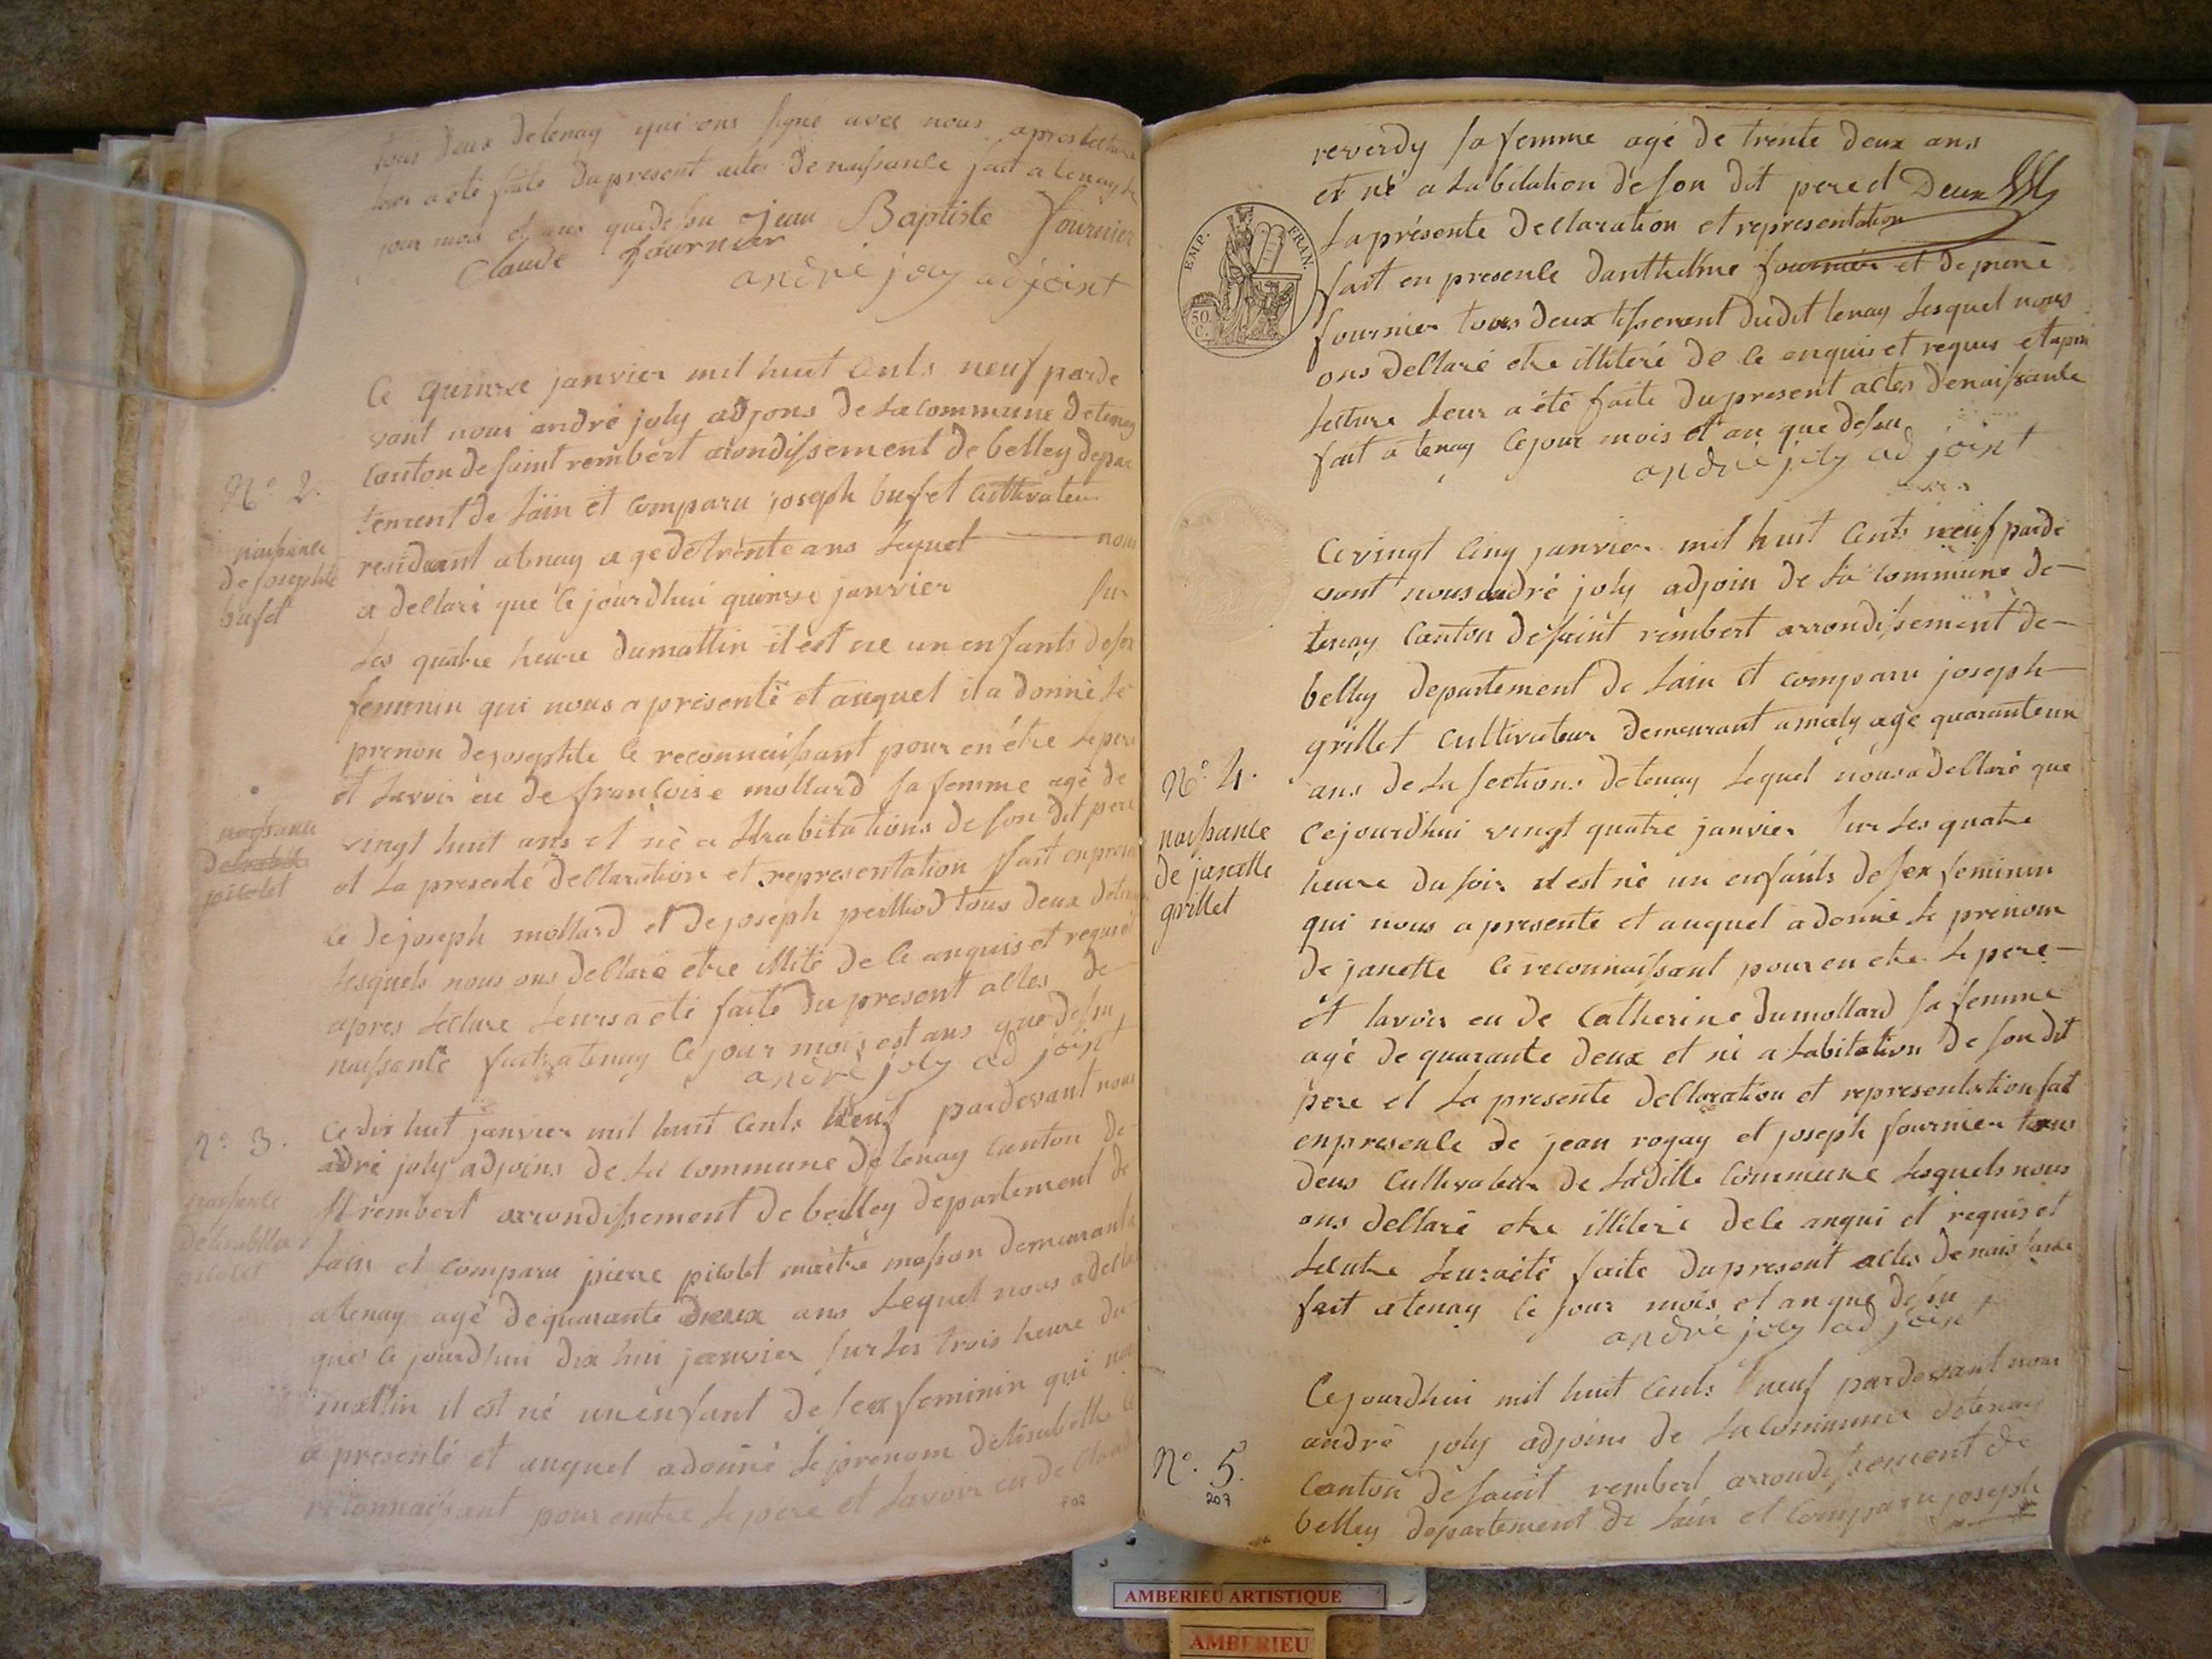 tous deux detenay qui ons signé avec nous apres lecture
leur a été faite du present actes de naissance fait a tenay le
jour mois et ans que desu jean Baptiste fournier
Claude fournier
andré joly adjoint
Ce quinze janvier mil huit Cents neuf parde
vant nous andré joly adjons de La commune detenay
Canton de saint rembert arondissement de belley depar
N.º 2.
tement de Lain et Comparu joseph bufet Cultivateur
naissance
de josephte
bufet
residant atenay agé de trente ans Lequel nous
a dellaré que Ce jourdhui quinze janvier sur
Les quatre heure dumattin il est né un enfants de sex
feminin qui nous a presenté et auquel il a donné Le
prenon de josephte Ce reconnaissant pour en étre Le pere
et Lavoir eu de francoise mollard sa femme agé de
vingt huit ans et né a Lhabitations de son dit pere
naissance
picolet
et La presente dellaration et representation fait enpresen
Ce de joseph mollard et de joseph peilliod tous deux detenay
Lesquels nous ons dellaré etre illité de Ce anquis et requis
apres Lecture Leurs a été faite du present actes de
naissance fait atenay Ce jour mois est ans que desu
andré joly ad joint
N.º 3.
Ce dix huit janvier mil huit Cents neuf pardevant nous
adré joly adjoins de La Commune de tenay Canton de
St rembert arrondissement de belley departement de
naissance
Lain et Comparu pierre picolet maitre masson demeurant
atenay agé de quarante deux ans Lequel nous a dellaré
que Ce jourdhui dix hui janvier sur Les trois heure du
mattin il est né un enfant de sex feminin qui nous
a presenté et auquel a donné Le prenom delisabette Ce
retonnaissant pour entre Le pere et Lavoir eu de Claudi
reverdy sa femme agé de trente deux ans
et né a Labitation de son dit pere et Deux
La présente Dellaration et representation
EMP. FRAN.
50 C.
fait en presence danthelme fournier et de pierre
fournier tous deux tisserent dudit tenay Lesquel nous
ons dellaré etre illiteré de Ce enquis et requis et apres
Lecture Leur a été faite du present actes de naissance
fait a tenay Ce jour mois et an que desu
andré joly ad joint
Ce vingt Cinq janvier mil huit Cents neuf parde
vant nous andré joly adjoin de La commune de
tenay Canton de saint rembert arrondissement de
belley departement de Lain et comparu joseph
grillet Cultivateur demeurant a maly agé quarante un
N.º 4.
naissance
de janette
grillet
ans de La sections detenay Lequel nous a dellaré que
Cejourdhui vingt quatre janvier sur Les quatre
heure du soir il est né un enfants de sex feminin
qui nous a presenté et auquel a donné Le prenom
de janette Ce reconnaissant pour en etre Le pere
et Lavoir eu de Catherine dumollard sa femme
agé de quarante deux et né a Labitation de son dit
pere et La presente dellaration et representation fait
enpresence de jean rogay et joseph fournier tous
deus Cultivateur de Laditte Commune Lesquels nous
ons dellaré etre illiteré de Ce anqui et requis et
Lecture Leur a été faite du present actes de naissance
fait atenay Ce jour mois et an que desu
andré joly ad joint
Cejourdhui mil huit Cents neuf pardevant nous
andré joly adjoins de La Commune detenay
N.º 5.
207
Canton de saint rembert arrondissement de
belley departement de Lain et Comparu joseph
AMBERIEU ARTISTIQUE
AMBERIEU